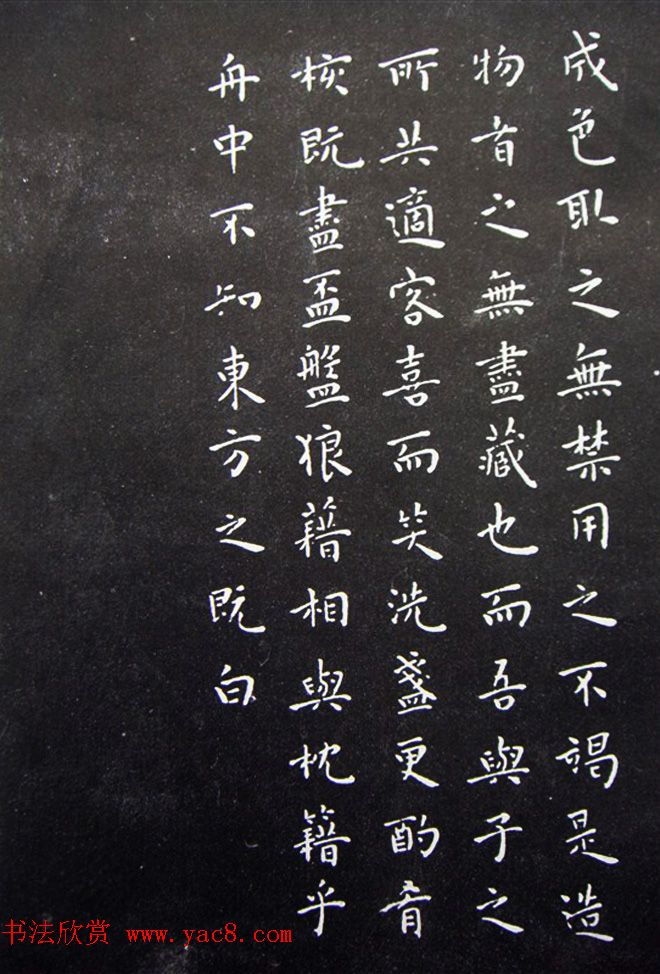 成色取之無禁用之不竭是造
物者之無盡藏也而吾與子之
所共適客喜而笑洗盞更酌肴
核既盡盃盤狼藉相與枕籍乎
舟中不知東方之既白
书法欣赏 www.yac8.com